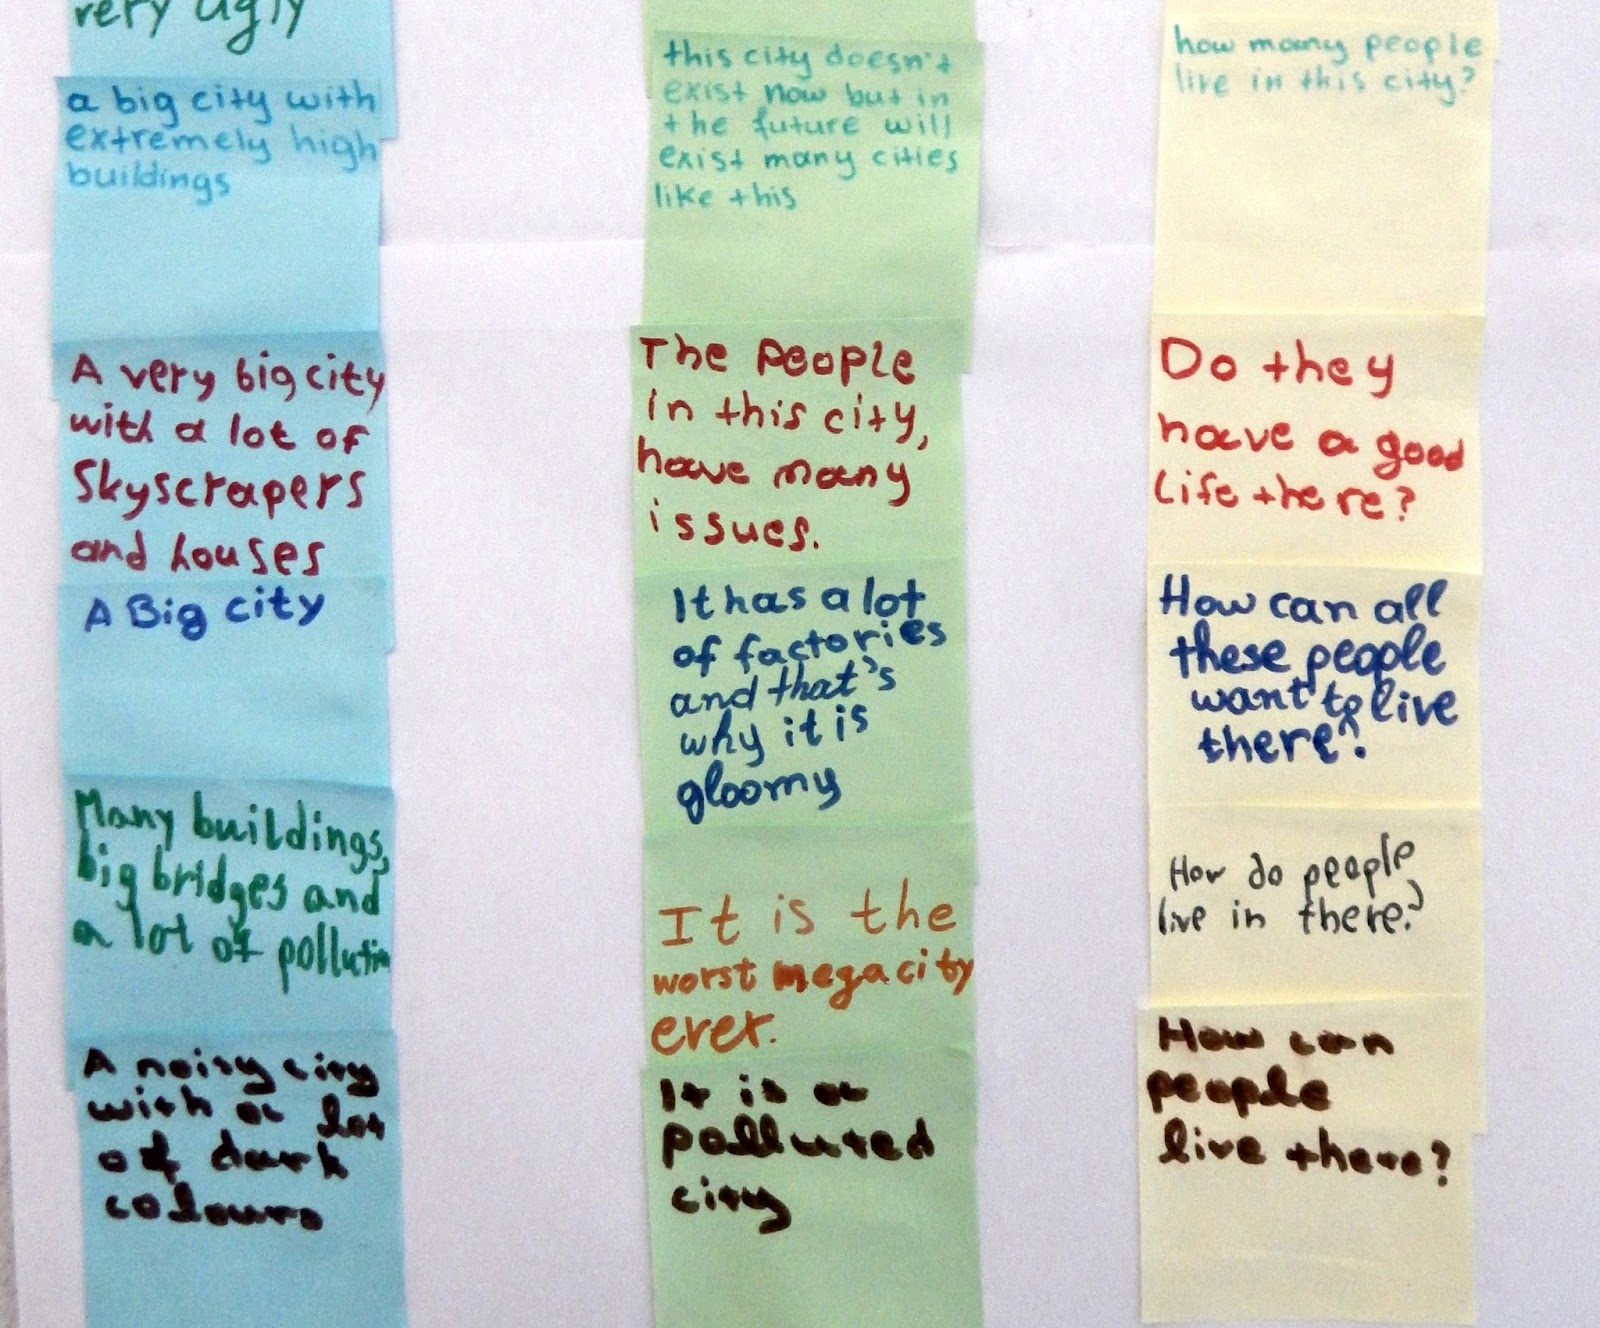 very ugly
a big city with
extremely high
buildings
A very big city
with a lot of
Skyscrapers
and houses
A Big city
Many buildings,
big bridges and
a lot of pollution
A noisy city
with a lot
of dark
colours
this city doesn't
exist now but in
the future will
exist many cities
like this
The people
in this city,
have many
issues.
It has a lot
of factories
and that's
why it is
gloomy
It is the
worst megacity
ever.
It is a
polluted
city
how many people
live in this city?
Do they
have a good
life there?
How can all
these people
want to live
there?
How do people
live in there?
How can
people
live there?